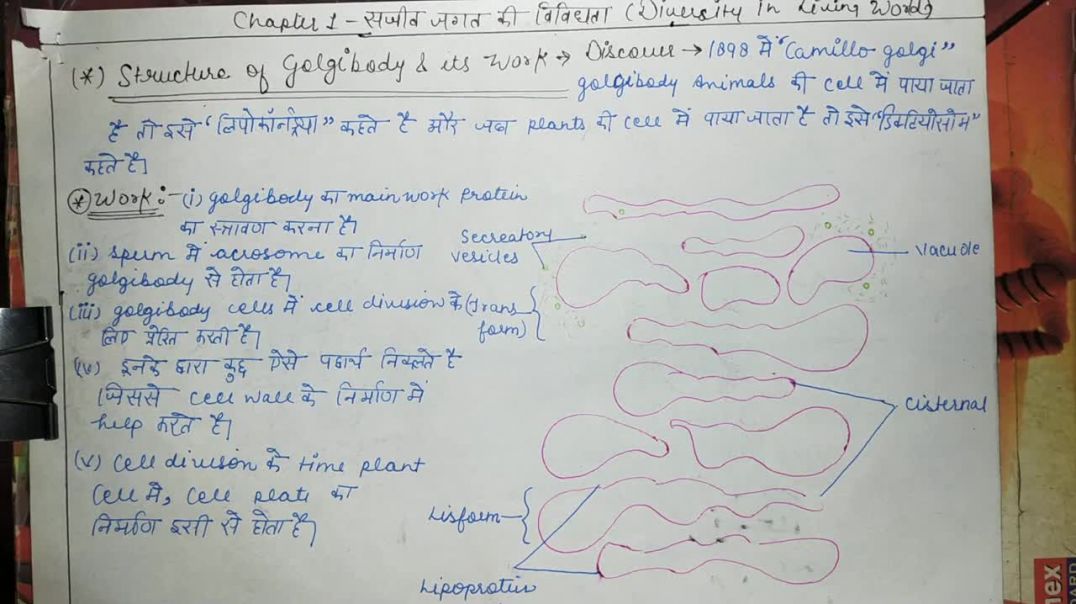 Chapter 1 - सजीव जगत की विविधता (Diversity In Living World)
(*) Structure of Golgibody & its Work → Discover → 1898 में "Camillo golgi"
golgibody Animals की cell में पाया जाता
है तो इसे "लिपोकॉनड्रिया" कहते है और जब plants की cell में पाया जाता है तो इसे "डिक्टियोसोम"
कहते है।
(*) Work :- (i) golgibody का main work protein
का स्त्रावण करना है।
(ii) spum में acrosome का निर्माण
golgibody से होता है।
(iii) golgibody cells में cell division के
लिए प्रेरित करती है।
(iv) इनके द्वारा कुछ ऐसे पदार्थ निकलते है
जिससे cell wall के निर्माण में
help करते है।
(v) cell division के time plant
cell में, cell plate का
निर्माण इसी से होता है।
Secreatory
vesicles
vacuole
(Trans
form)
cisternal
Lisform
Lipoprotein
nex